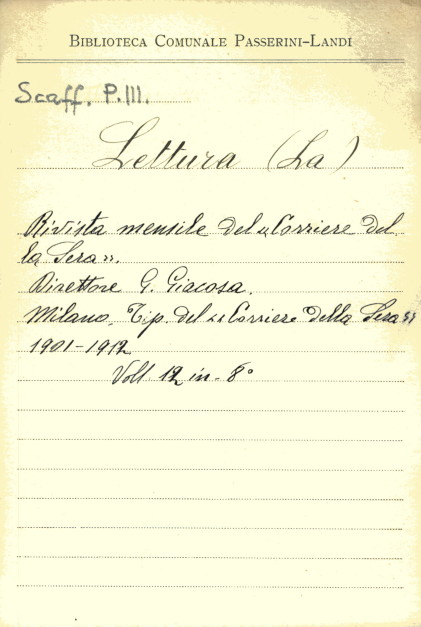 BIBLIOTECA COMUNALE PASSERINI-LANDI
Scaff. P.III.
Lettura (La)
Rivista mensile del «Corriere del
la Sera».
Direttore G. Giacosa.
Milano, Tip. del «Corriere della Sera»
1901-1912
Voll. 12 in-8°